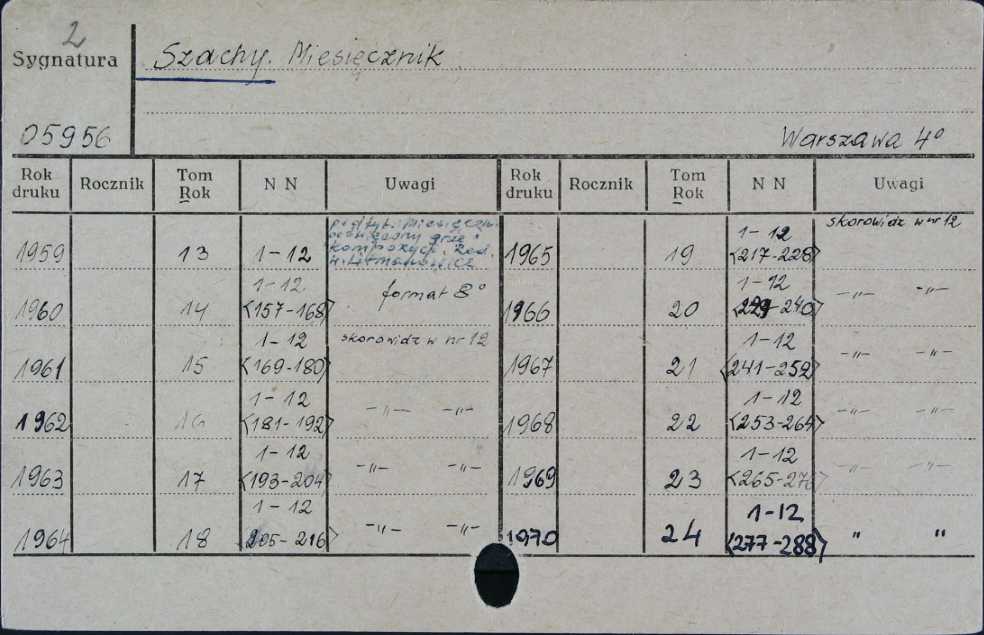 2
Sygnatura
Szachy. Miesięcznik
05956
Warszawa 4°
Rok druku Rocznik Tom Rok N N Uwagi Rok druku Rocznik Tom Rok N N Uwagi
1959 13 1-12 podtyt.: Miesięczn.
poświęcony grze i
kompozycji. Red.
W. Litmanowicz
1965 19 1-12 <217-228> skorowidz w nr 12
1960 14 1-12 <157-168> format 8°
1966 20 1-12 <229-240> -〃- -〃-
1961 15 1-12 <169-180> skorowidz w nr 12
1967 21 1-12 <241-252> -〃- -〃-
1962 16 1-12 <181-192> -〃- -〃-
1968 22 1-12 <253-264> -〃- -〃-
1963 17 1-12 <193-204> -〃- -〃-
1969 23 1-12 <265-276> -〃- -〃-
1964 18 1-12 <205-216> -〃- -〃-
1970 24 1-12 <277-288> 〃 〃